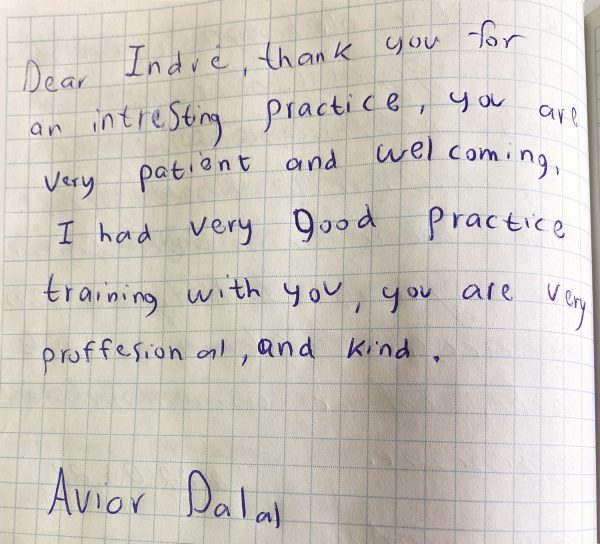 Dear Indrė, thank you for
an intresting practice, you are
very patient and welcoming,
I had very good practice
training with you, you are very
proffesional, and kind.
Avior Dalal